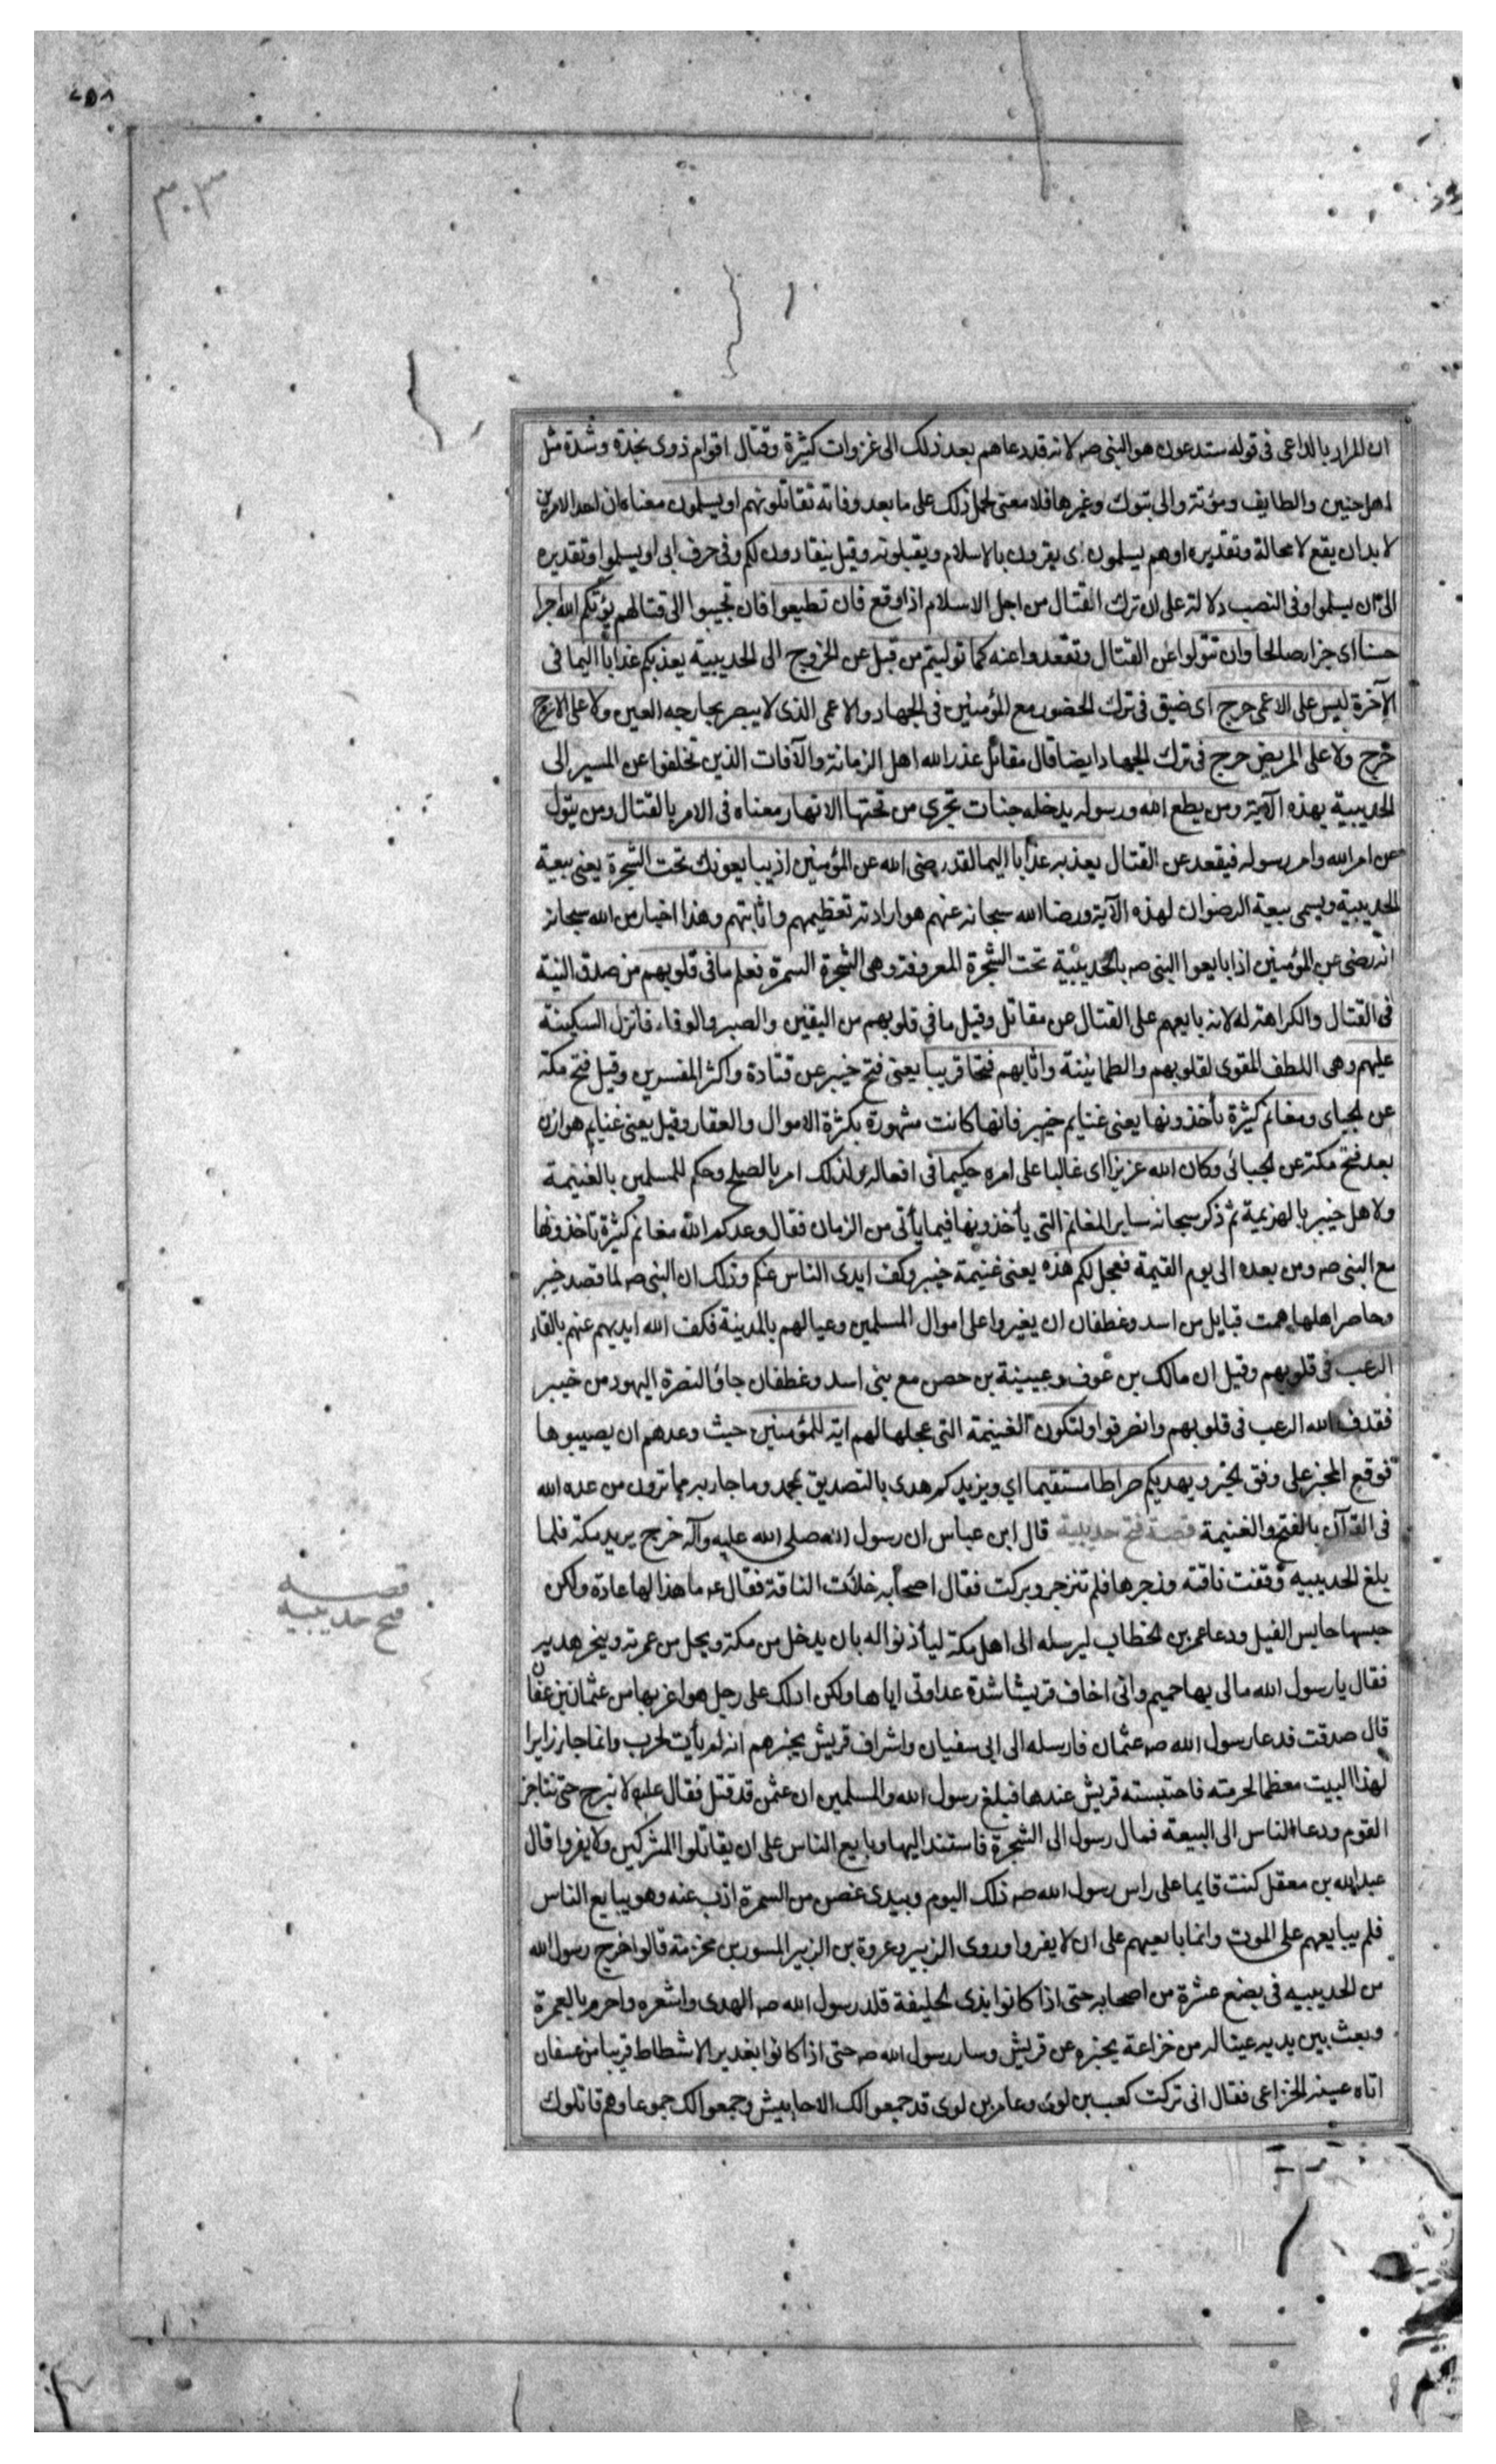 ان المراد بالداعی فی قوله ستدعون هو النبی صہ لانه قد دعاهم بعد ذلک الی غزوات کثیرة وقتال اقوام ذوی نجدة وشدة مثل
اهل حنین والطایف ومؤتة والی تبوک وغیرها فلا معنی لحمل ذلک علی ما بعد وفاته تقاتلونهم او یسلمون معناه ان احد الامرین
لا بد ان یقع لا محالة وتقدیره او هم یسلمون ای یقرون بالاسلام ویقبلونه وقیل ینقادون لکم وفی حرف ابی او یسلموا وتقدیره
الی ان یسلموا وفی النصب دلالة علی ان ترک القتال من اجل الاسلام اذا وقع فان تطیعوا فان تجیبوا الی قتالهم یؤتکم الله اجرا
حسنا ای جزاء صالحا وان تتولوا عن القتال وتقعدوا عنه کما تولیتم من قبل عن الخروج الی الحدیبیة یعذبکم عذابا الیما فی
الآخرة لیس علی الاعمی حرج ای ضیق فی ترک الحضور مع المؤمنین فی الجهاد والاعمی الذی لا یبصر بجارحه العین ولا علی الاعرج
حرج ولا علی المریض حرج فی ترک الجهاد ایضا قال مقاتل عذر الله اهل الزمانة والآفات الذین تخلفوا عن المسیر الی
الحدیبیة بهذه الآیة ومن یطع الله ورسوله یدخله جنات تجری من تحتها الانهار معناه فی الامر بالقتال ومن یتول
عن امر الله وامر رسوله فیقعد عن القتال یعذبه عذابا الیما لقد رضی الله عن المؤمنین اذ یبایعونک تحت الشجرة یعنی بیعة
الحدیبیة ویسمی بیعة الرضوان لهذه الآیة ورضا الله سبحانه عنهم هو ارادته تعظیمهم واثابتهم وهذا اخبار من الله سبحانه
انه رضی عن المؤمنین اذا بایعوا النبی صہ بالحدیبیة تحت الشجرة المعروفة وهی الشجرة السمرة فعلم ما فی قلوبهم من صدق النیة
فی القتال والکراهة له لانه بایعهم علی القتال عن مقاتل وقیل ما فی قلوبهم من الیقین والصبر والوفاء فانزل السکینة
علیهم وهی اللطف المقوی لقلوبهم والطمانینة واثابهم فتحا قریبا یعنی فتح خیبر عن قتادة واکثر المفسرین وقیل فتح مکة
عن الجبای ومغانم کثیرة یأخذونها یعنی غنایم خیبر فانها کانت مشهورة بکثرة الاموال والعقار وقیل یعنی غنایم هوازن
بعد فتح مکة عن الجبائی وکان الله عزیزا ای غالبا علی امره حکیما فی افعاله ولذلک امر بالصلح وحکم للمسلمین بالغنیمة
ولاهل خیبر بالهزیمة ثم ذکر سبحانه سایر المغانم التی یأخذونها فیما یأتی من الزمان فقال وعدکم الله مغانم کثیرة تاخذونها
مع النبی صہ ومن بعده الی یوم القیمة فعجل لکم هذه یعنی غنیمة خیبر وکف ایدی الناس عنکم وذلک ان النبی صہ لما قصد خیبر
وحاصر اهلها همت قبایل من اسد وغطفان ان یغیروا علی اموال المسلمین وعیالهم بالمدینة فکف الله ایدیهم عنهم بالقاء
الرعب فی قلوبهم وقیل ان مالک بن عوف وعیینة بن حصن مع بنی اسد وغطفان جاؤا لنصرة الیهود من خیبر
فقذف الله الرعب فی قلوبهم وانصرفوا ولتکون الغنیمة التی عجلها لهم ایة للمؤمنین حیث وعدهم ان یصیبوها
فوقع المخبر علی وفق الخبر ویهدیکم صراطا مستقیما ای ویزیدکم هدی بالتصدیق بمحمد وما جاء به مما ترون من عدة الله
فی القرآن بالفتح والغنیمة قصة فتح حدیبیة قال ابن عباس ان رسول الله صلی الله علیه وآله خرج یرید مکة فلما
بلغ الحدیبیه وقفت ناقته وزجرها فلم تنزجر وبرکت فقال اصحابه خلأت الناقة فقال عم ما هذا لها عادة ولکن
حبسها حابس الفیل ودعا عمر بن الخطاب لیرسله الی اهل مکة لیأذنوا له بان یدخل من مکة ویحل من عمرته وینحر هدیه
فقال یا رسول الله مالی بها حمیم وانی اخاف قریشا شدة عداوتی ایاها ولکن ادلک علی رجل هو اعز بها من عثمان بن عفان
قال صدقت فدعا رسول الله صہ عثمان فارسله الی ابی سفیان واشراف قریش یخبرهم انه لم یأت لحرب وانما جاء زایرا
لهذا البیت معظما لحرمته فاحتبسته قریش عندها فبلغ رسول الله والمسلمین ان عثمن قد قتل فقال علیه لا نبرح حتی نناجز
القوم ودعا الناس الی البیعة فمال رسول الی الشجرة فاستند الیها وبایع الناس علی ان یقاتلوا المشرکین ولا یفروا قال
عبد الله بن معقل کنت قایما علی راس رسول الله صہ ذلک الیوم وبیدی غصن من السمرة اذب عنه وهو یبایع الناس
فلم یبایعهم علی الموت وانما بایعهم علی ان لا یفروا وروی الزبیر وعروة بن الزبیر المسور بن مخزمة قالوا خرج رسول الله
من الحدیبیه فی بضع عشرة من اصحابه حتی اذا کانوا بذی الحلیفة قلد رسول الله صہ الهدی واشعره واحرم بالعمرة
وبعث بین یدیه عینا له من خزاعة یخبره عن قریش وسار رسول الله صہ حتی اذا کانوا بغدیر الاشطاط قریبا من عسفان
اتاه عینه الخزاعی فقال انی ترکت کعب بن لوی وعامر بن لوی قد جمعوا لک الاحابیش وجمعوا لک جموعا وهم قاتلوک
قصه
فتح حدیبیه
۳۰۳